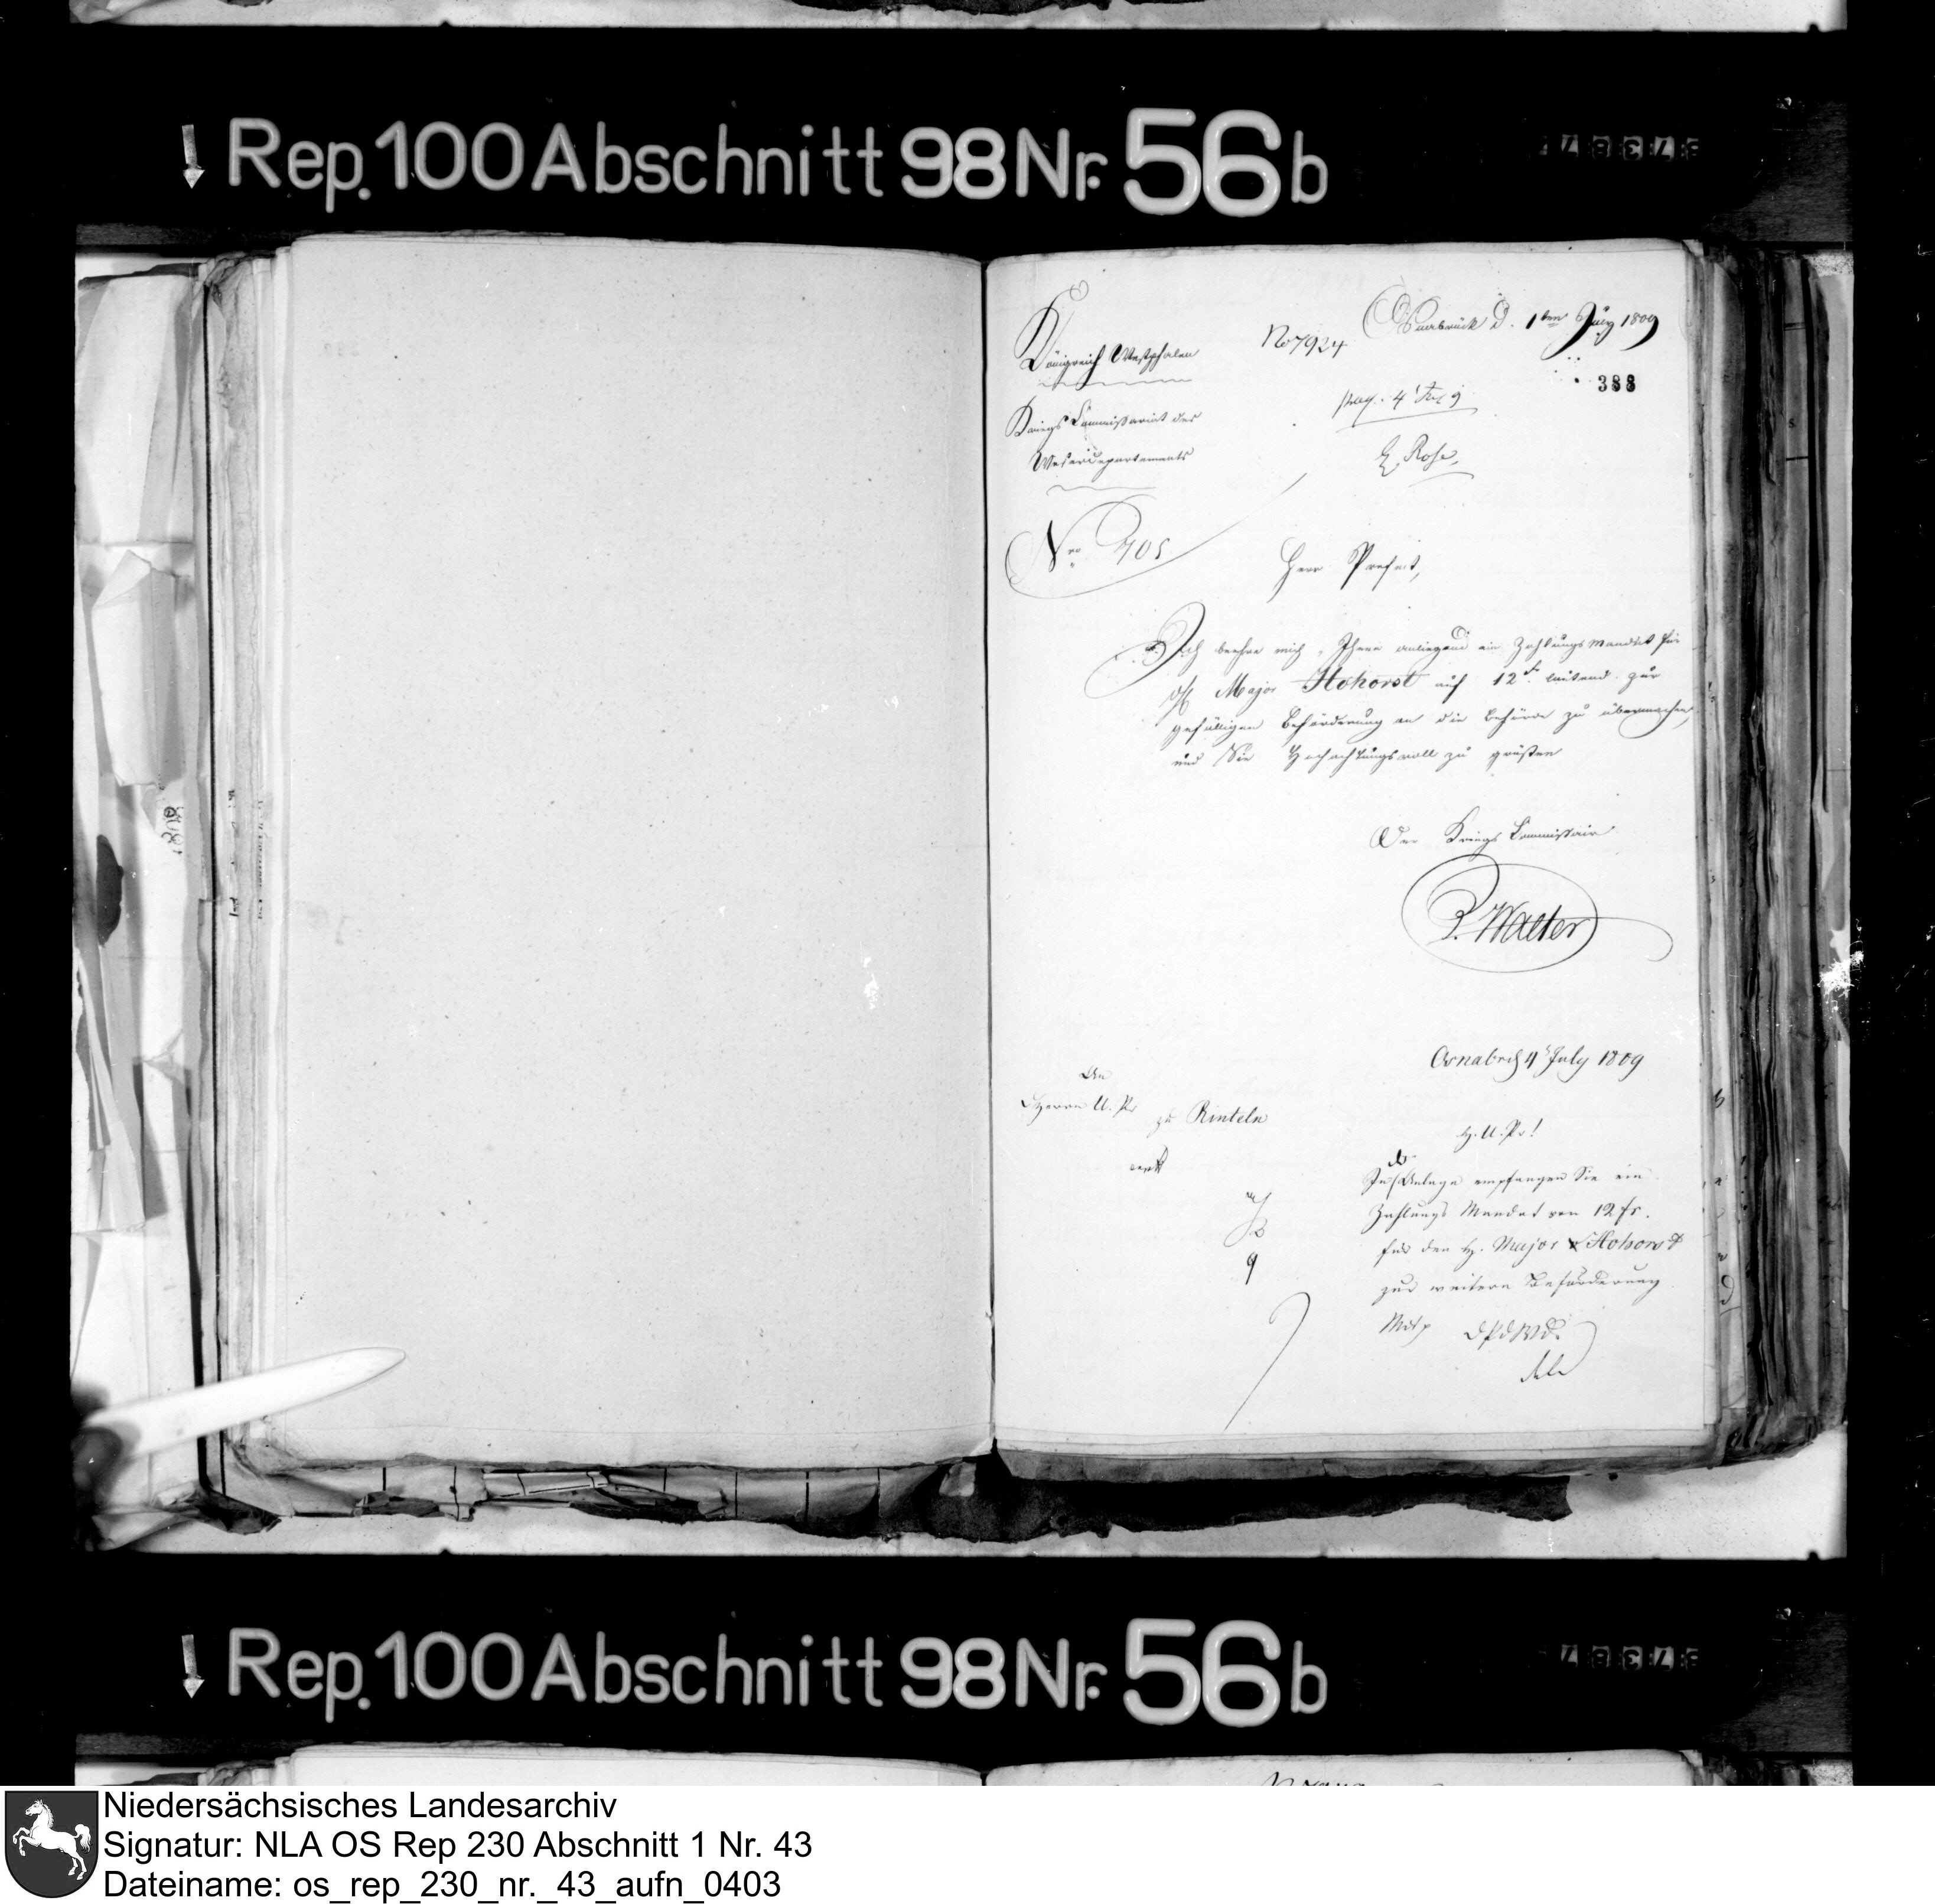 Rep. 100 Abschnitt 98 Nr. 56 b
Königreich Westphalen
KriegsCommissariat des
Weserdepartements
Nro 405
No 7924
Osnabrück d. 1ten July 1809
388
E. Rose
Herr Präfect,
Ich beehre mich, Ihnen anliegend ein Zahlungsmandat für
Major Hohorst auf 12 fr. lautend zur
gefälligen Beförderung an die Behörde zu übermachen,
und Sie Hochachtungsvoll zu grüßen
Der Kriegs Commissair
P. Walter
Osnabrck 4 July 1809
An
Herrn U. Pr
zu Rinteln
H. U. Pr!
In der Anlage empfangen Sie ein
Zahlungs Mandat von 12 fr.
für den H. Major Hohorst
zur weitern Beförderung
DPdWD.
Rep. 100 Abschnitt 98 Nr. 56 b
Niedersächsisches Landesarchiv
Signatur: NLA OS Rep 230 Abschnitt 1 Nr. 43
Dateiname: os_rep_230_nr._43_aufn_0403